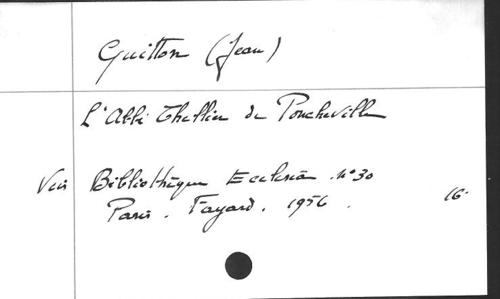 Guitton (Jean)
L'Abbé Thellier de Poncheville
Voir Bibliothèque Ecclesia. n°30
Paris. Fayard. 1956. 16°